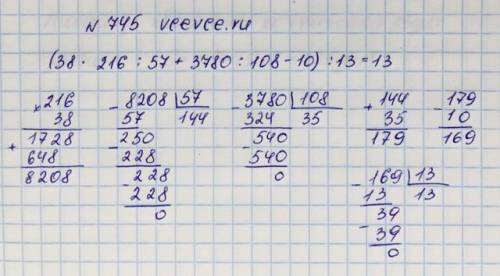 № 745 veevee.ru
(38 · 216 : 57 + 3780 : 108 - 10) : 13 = 13
× 216
38
1728
+ 648
8208
- 8208 | 57
57 144
- 250
228
- 228
228
0
- 3780 | 108
324 35
- 540
540
0
+ 144
35
179
- 179
10
169
- 169 | 13
13 13
- 39
39
0